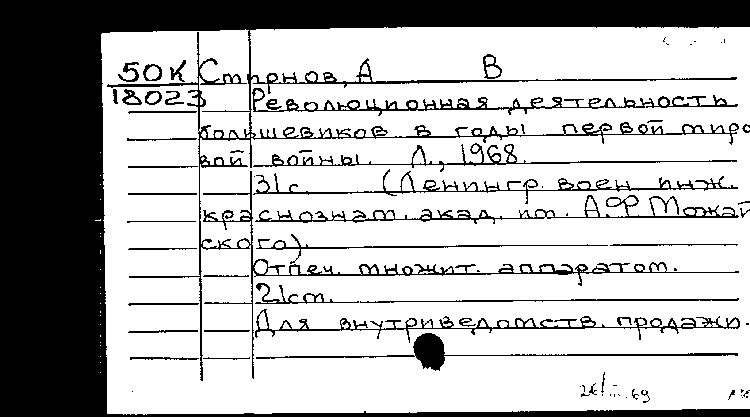 50К Смирнов, А В
18023 Революционная деятельность
большевиков в годы первой миро
вой войны. Л., 1968.
31с. (Ленингр. воен инж.
краснознам. акад. им. А.Ф Можай
ского).
Отпеч. множит. аппаратом.
21см.
Для внутриведомств. продажи.
26/III 69